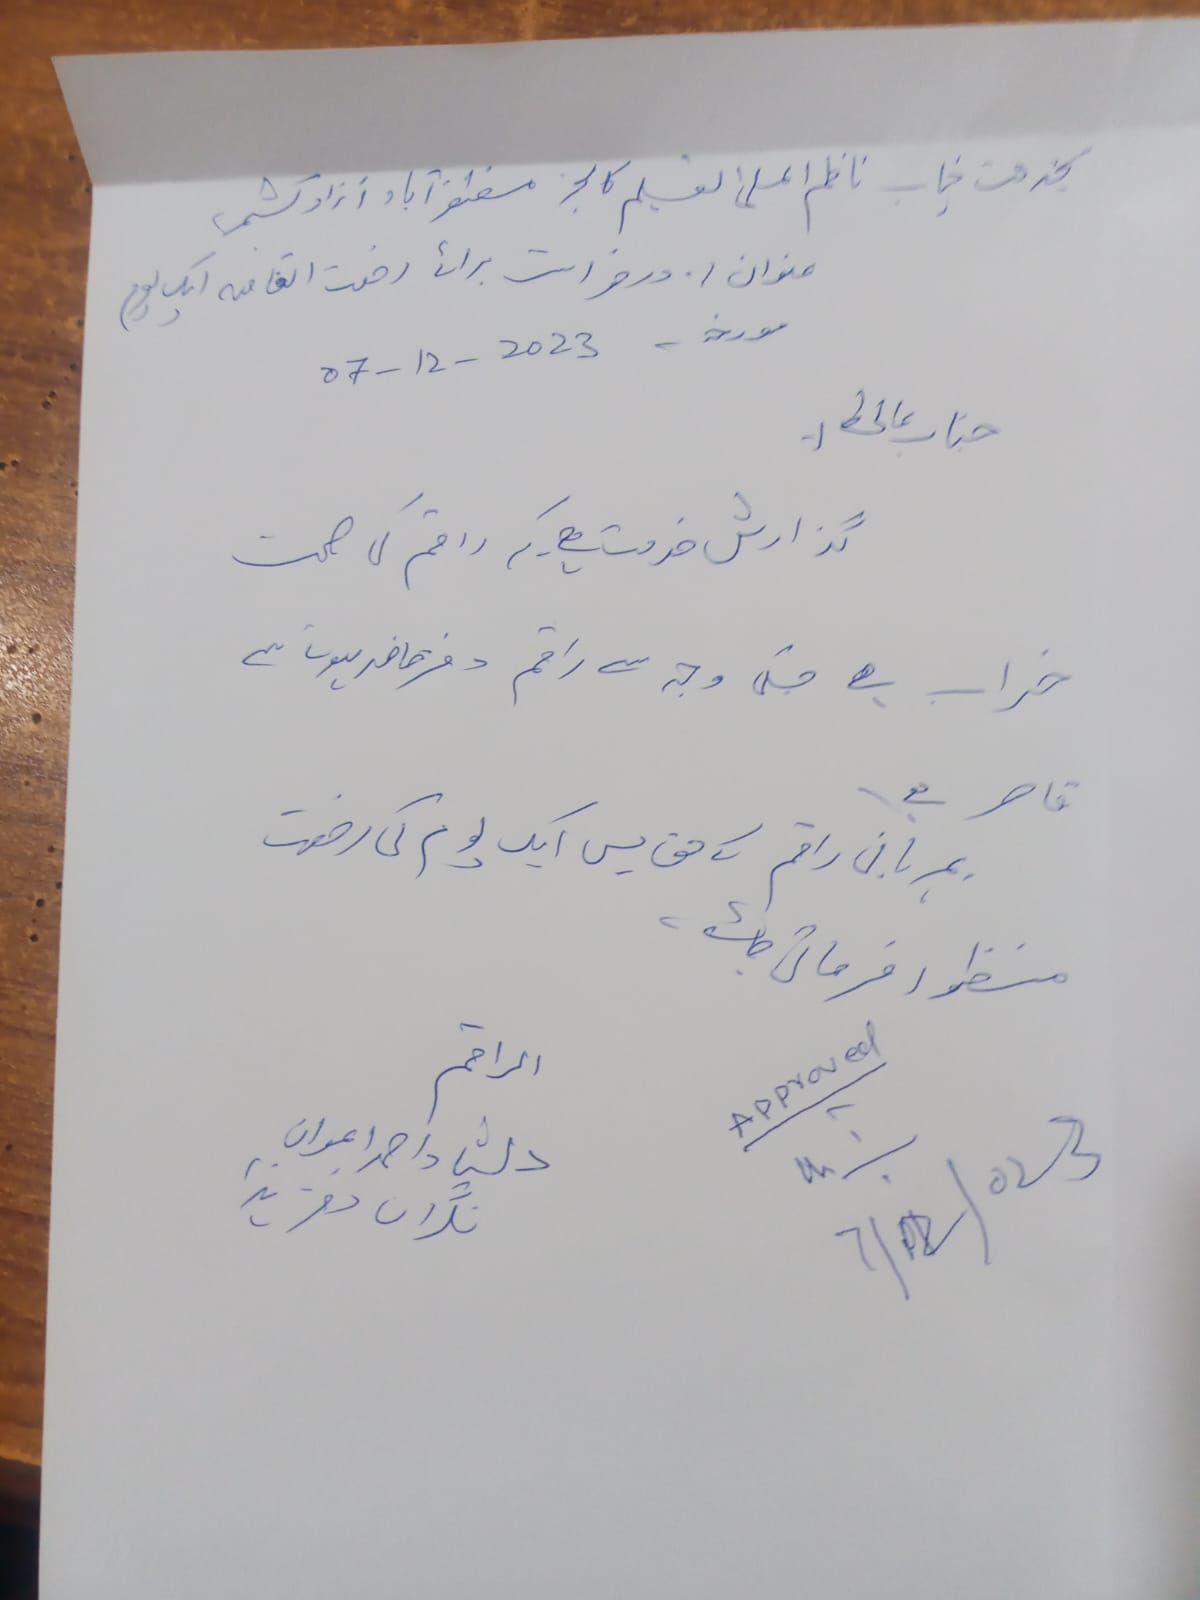 بخدمت جناب ناظم اعلیٰ تعلیم کالجز مظفرآباد آزاد کشمیر
عنوان :۔ درخواست برائے رخصت اتفاقیہ ایک یوم
مورخہ ۔ 07-12-2023
جناب عالی :۔
گذارش خدمت ہے کہ راقم کی صحت
خراب ہے جسکی وجہ سے راقم دفتر حاضر ہونے سے
قاصر ہے۔
بمہربانی راقم کے حق میں ایک یوم کی رخصت
منظور فرمائی جائے ۔
الراقم
دلشاد احمد اعوان
نگران دفتر ہذا
Approved
7/12/2023